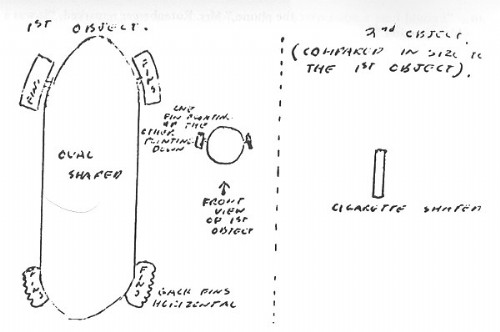 1ST OBJECT.
FINS
FINS
OVAL
SHAPED
ONE
FIN POINTING
UP THE
OTHER
POINTING
DOWN
↑
FRONT
VIEW
OF 1ST
OBJECT
FINS
FINS
BACK FINS
HORIZONTAL
2nd OBJECT.
(COMPARED IN SIZE TO
THE 1ST OBJECT).
CIGARETTE SHAPED